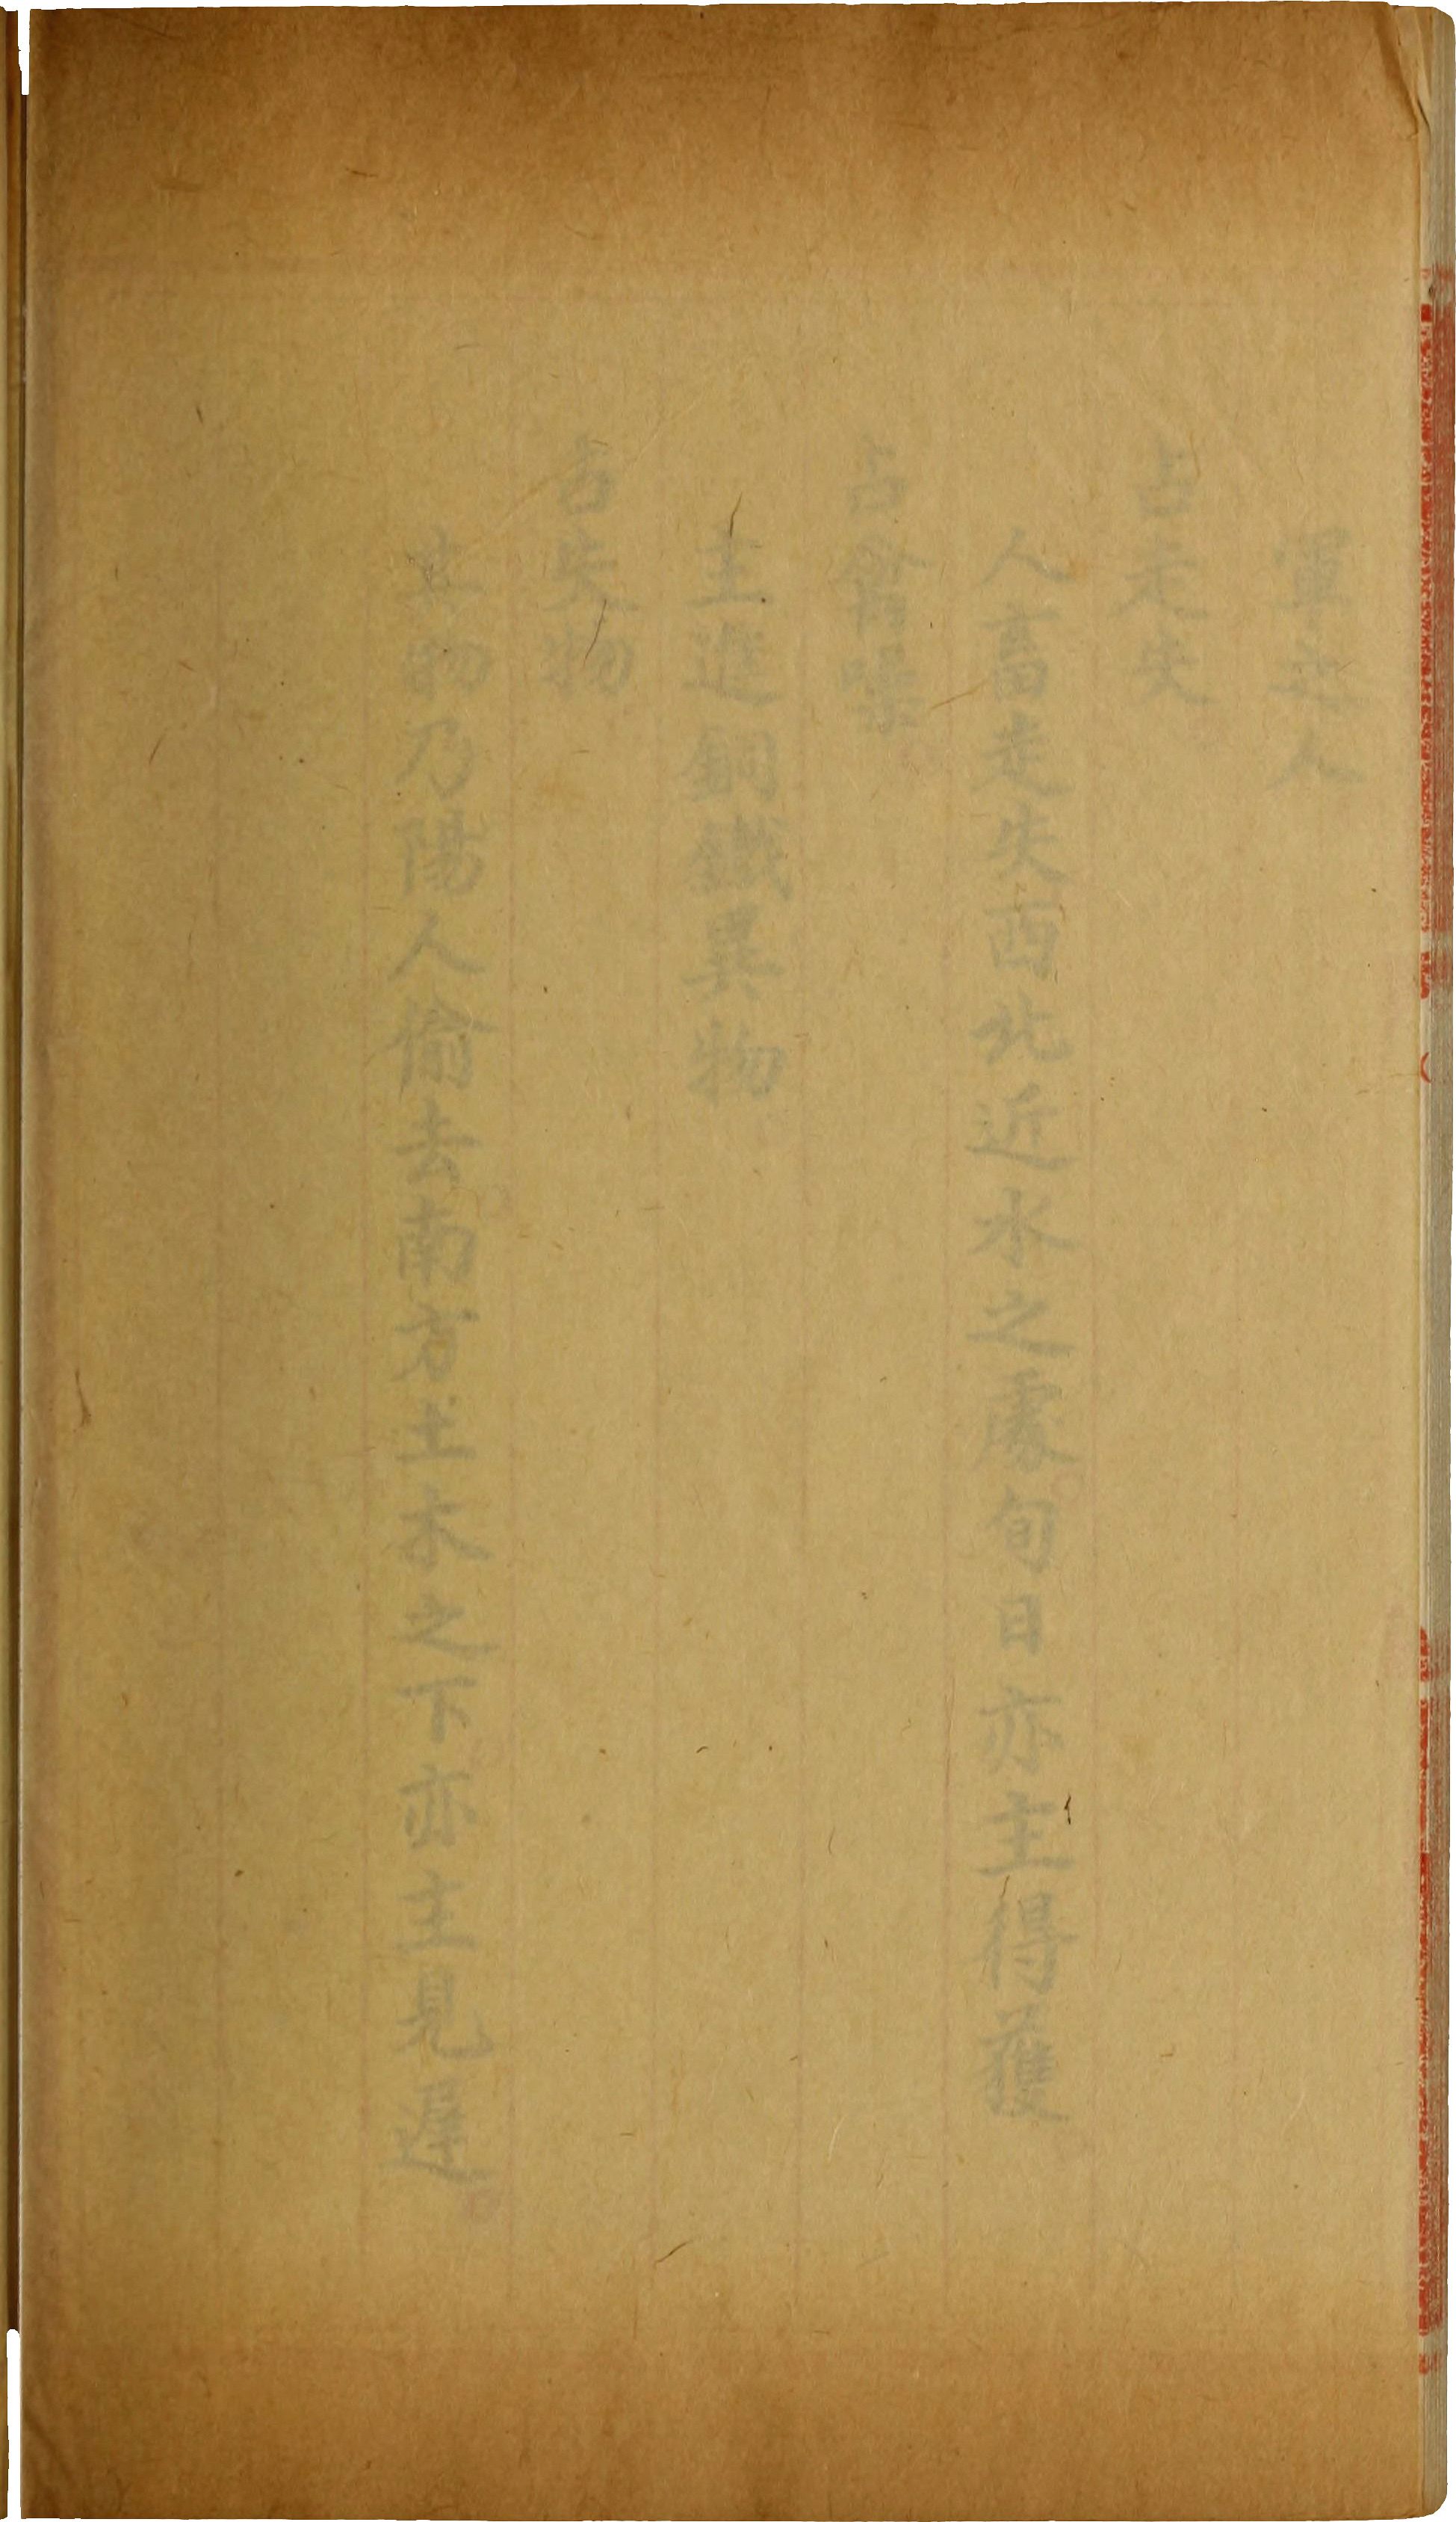 軍之人
占走失
人畜走失西北近水之處旬日亦主得獲
占禽噪
主進銅鐵異物
占失物
其物乃陽人偷去南方土木之下亦主見遲